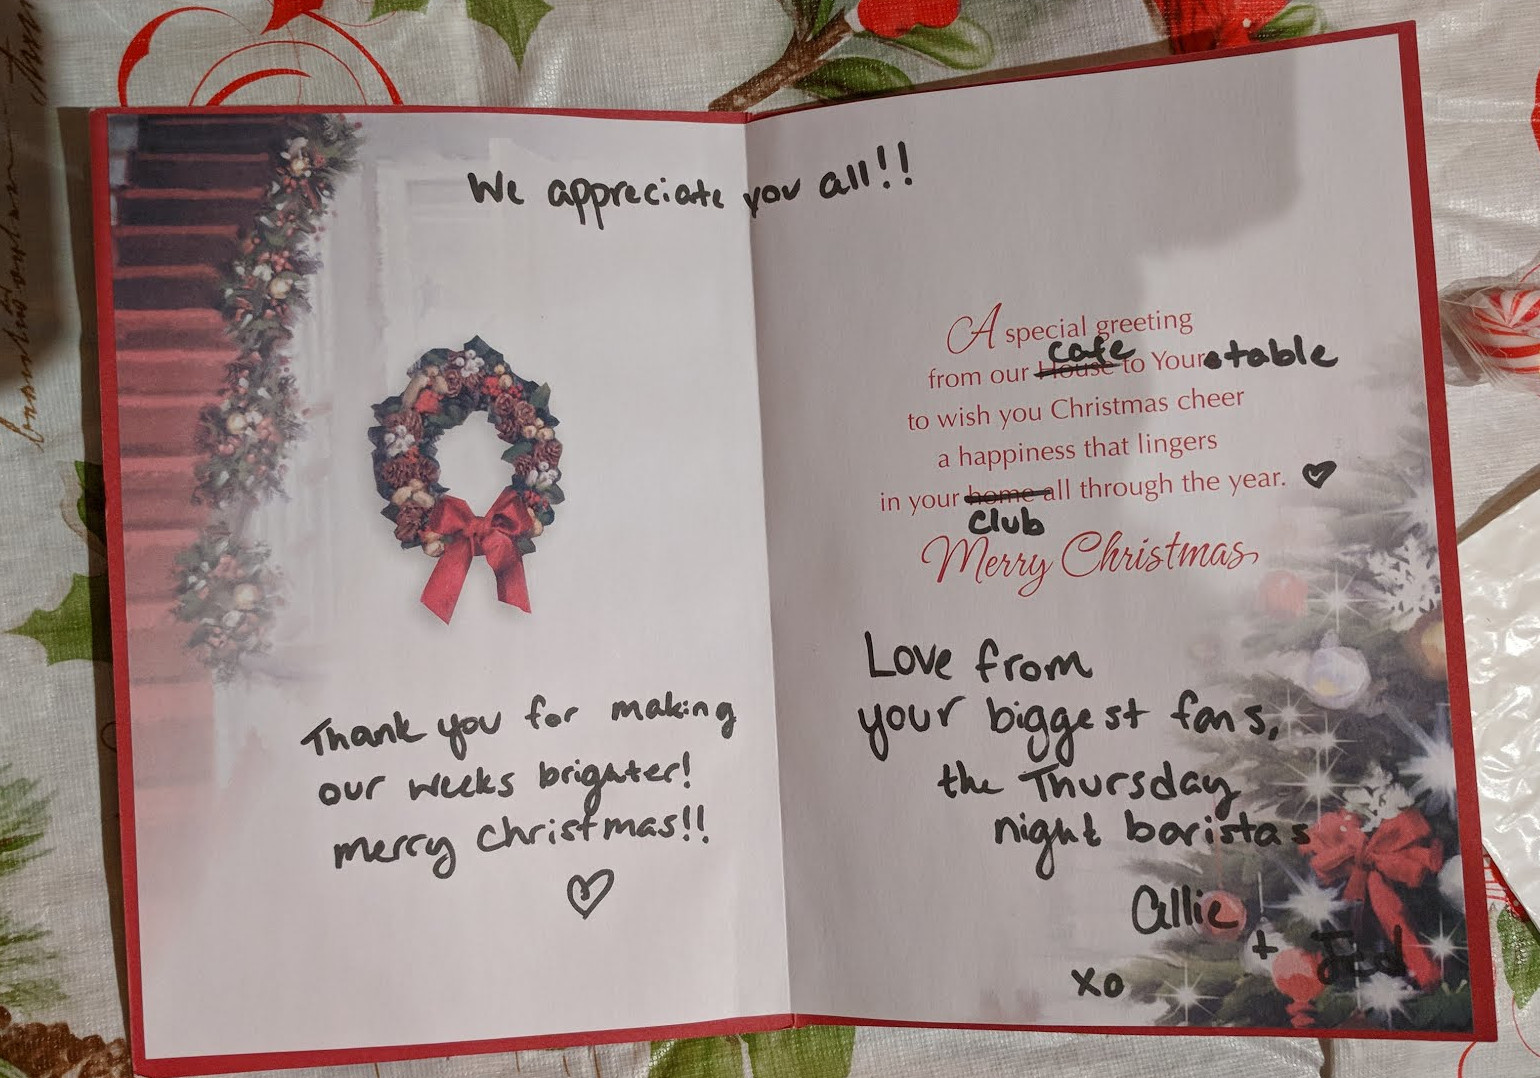 We appreciate you all!!
Thank you for making
our weeks brighter!
merry christmas!!
A special greeting
cafe
from our House to Your table
to wish you Christmas cheer
a happiness that lingers
in your home all through the year.
club
Merry Christmas
Love from
your biggest fans,
the Thursday
night baristas
Allie
+ Jed
xo